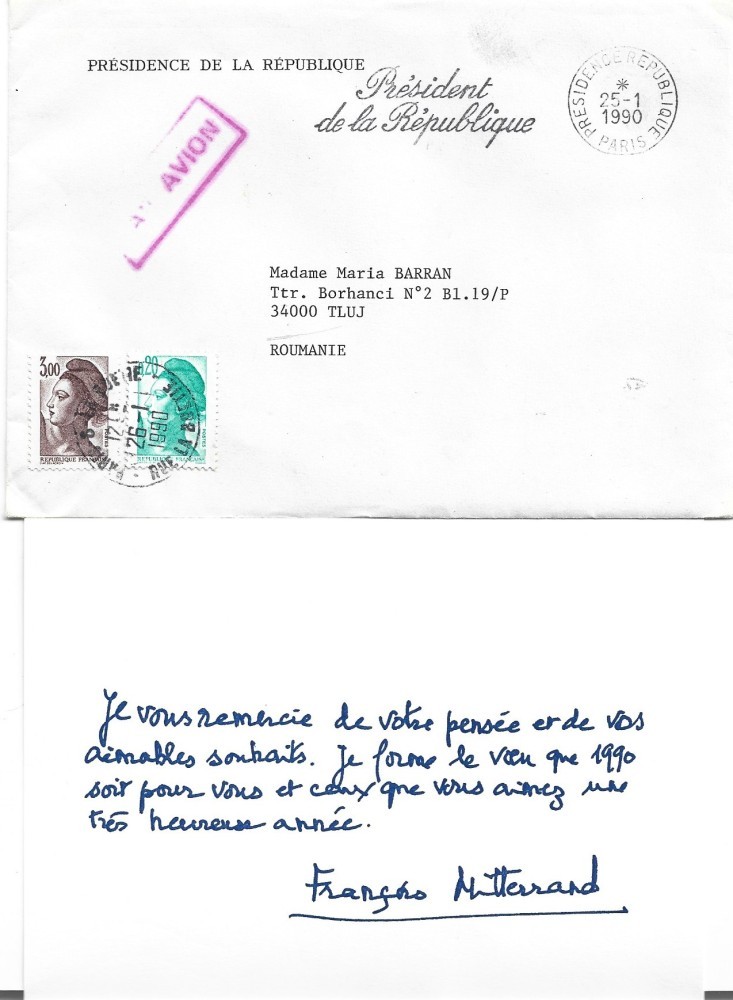 PRÉSIDENCE DE LA RÉPUBLIQUE
Président
de la République
PRESIDENCE REPUBLIQUE
*
25-1
1990
PARIS
AVION
Madame Maria BARRAN
Ttr. Borhanci N°2 Bl.19/P
34000 TLUJ
ROUMANIE
3,00
REPUBLIQUE FRANÇAISE
,20
POSTES
REPUBLIQUE FRANÇAISE
26-1
1990
Je vous remercie de votre pensée et de vos
aimables souhaits. Je forme le vœu que 1990
soit pour vous et ceux que vous aimez une
très heureuse année.
François Mitterrand